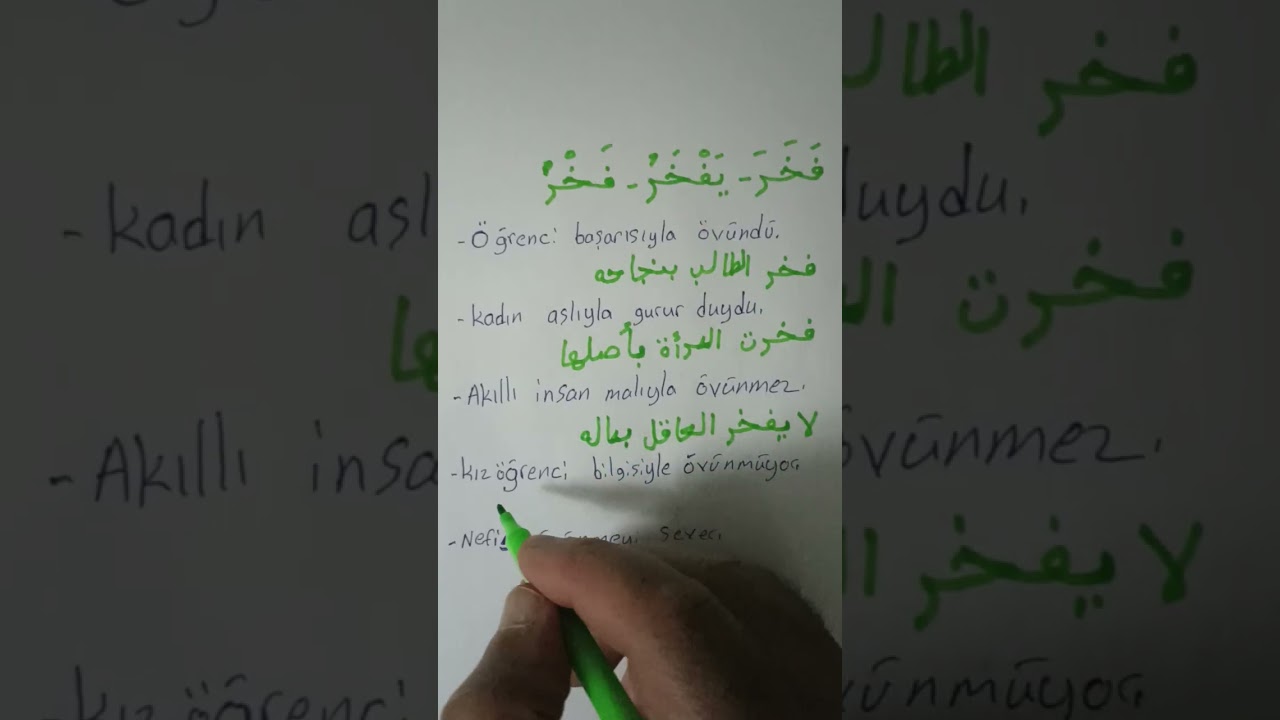 فَخَرَ - يَفْخَرُ - فَخْرٌ
- Öğrenci başarısıyla övündü.
فخر الطالب بنجاحه
- kadın aslıyla gurur duydu.
فخرت المرأة بأصلها
- Akıllı insan malıyla övünmez.
لا يفخر العاقل بماله
- kız öğrenci bilgisiyle övünmüyor.
- sever.